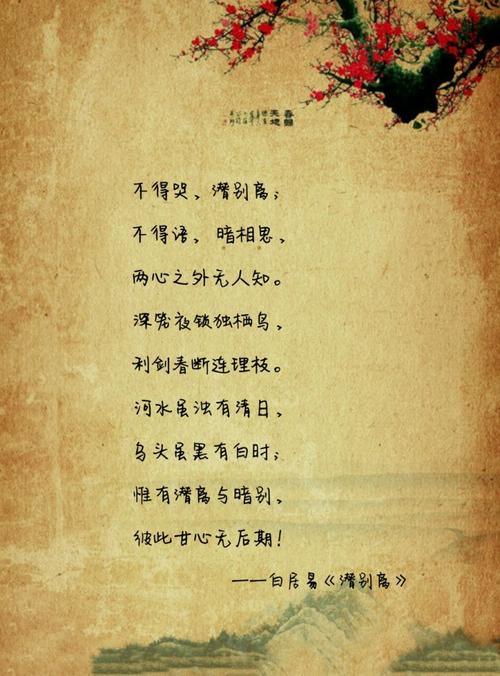 不得哭，潜别离；
不得语，暗相思，
两心之外无人知。
深笼夜锁独栖鸟，
利剑春断连理枝。
河水虽浊有清日，
乌头虽黑有白时；
惟有潜离与暗别，
彼此甘心无后期！
——白居易《潜别离》